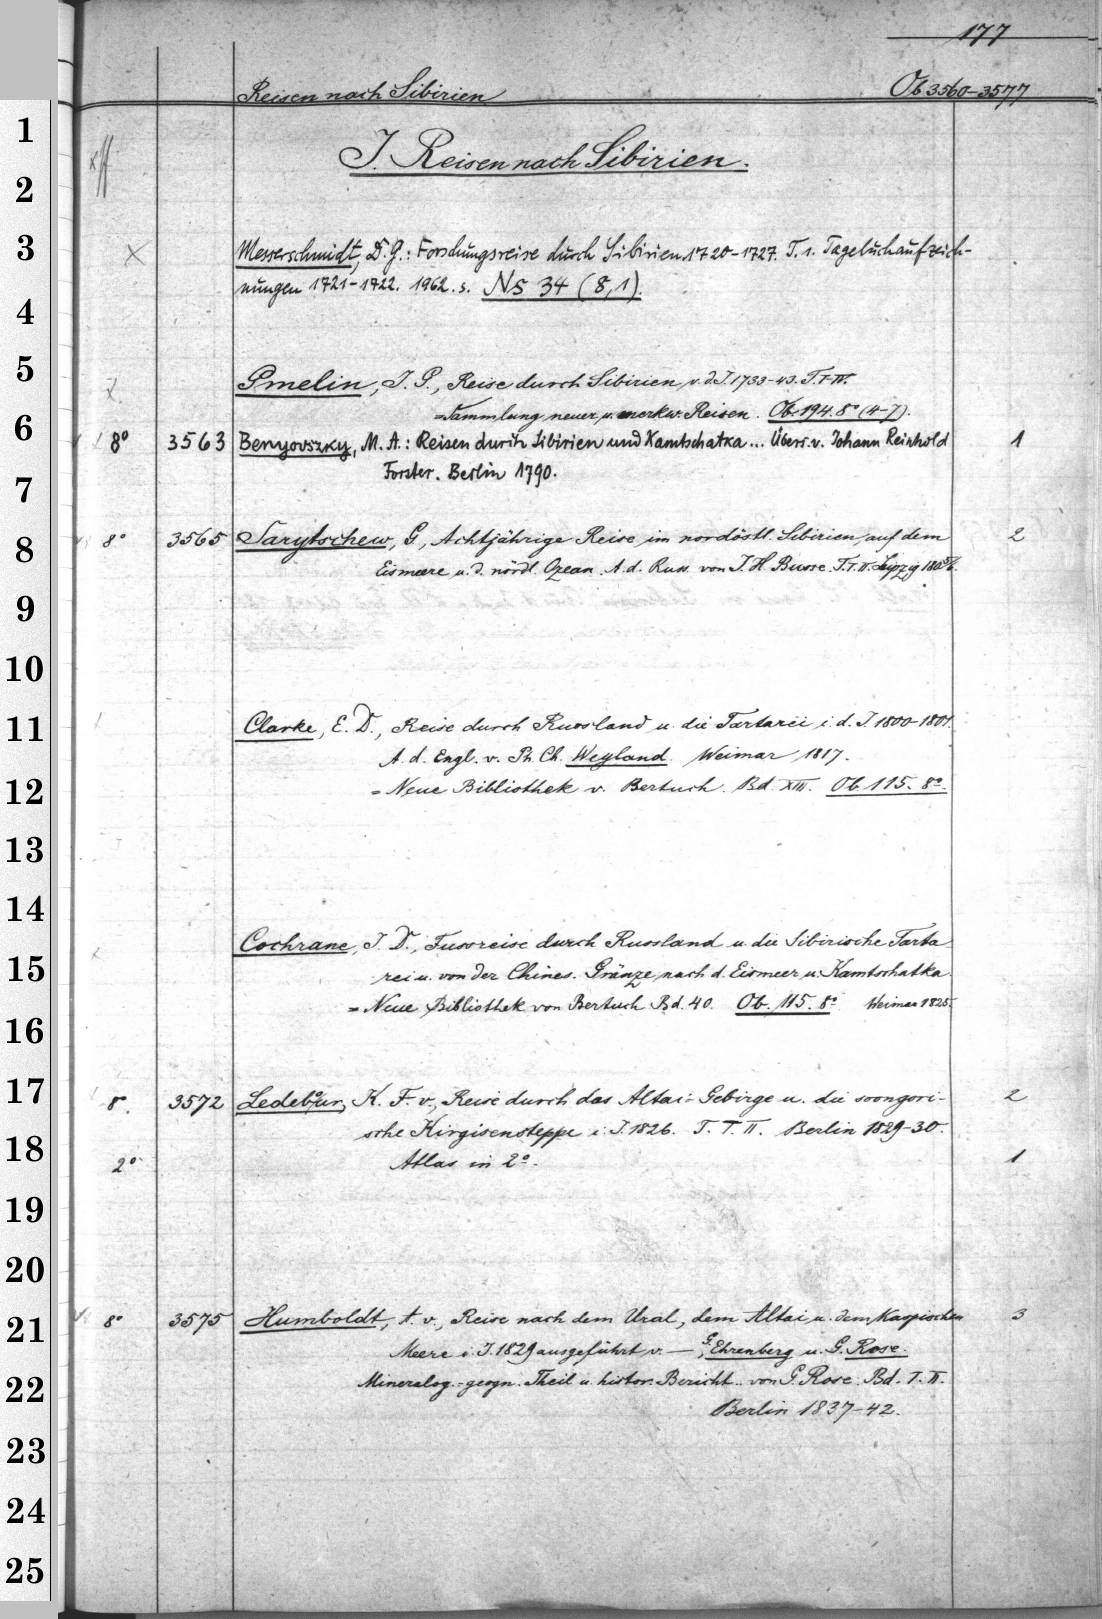 177
Reisen nach Sibirien Ob 3560-3577
I. Reisen nach Sibirien.
Messerschmidt, D. G.: Forschungsreise durch Sibirien 1720-1727. T. 1. Tagebuchaufzeich-
nungen 1721-1722. 1962. s. Ns 34 (8,1).
Gmelin, J. G., Reise durch Sibirien v. d. J. 1733-43. T. I-IV.
= Sammlung neuer u. merkw. Reisen. Ob. 194. 8° (4-7).
8° 3563 Benyovszky, M. A.: Reisen durch Sibirien und Kamtschatka... Übers. v. Johann Reinhold 1
Forster. Berlin 1790.
8° 3565 Sarytschew, G., Achtjährige Reise im nordöstl. Sibirien, auf dem 2
Eismeere u. d. nördl. Ozean. A. d. Russ. von J. H. Busse. T. I. II. Leipzig
Clarke, E. D., Reise durch Russland u. die Tartarei i. d. J. 1800-1801.
A. d. Engl. v. Ph. Ch. Weyland. Weimar 1817.
= Neue Bibliothek v. Bertuch. Bd. XIII. Ob. 115. 8°.
Cochrane, J. D., Fussreise durch Russland u. die Sibirische Tarta
rei u. von der Chines. Gränze nach d. Eismeer u. Kamtschatka
= Neue Bibliothek von Bertuch Bd. 40. Ob. 115. 8° Weimar 1825.
8° 3572 Ledebour, K. F. v., Reise durch das Altai-Gebirge u. die soongori- 2
sche Kirgisensteppe i. J. 1826. T. I. II. Berlin 1829-30.
2° Atlas in 2°. 1
8° 3575 Humboldt, A. v., Reise nach dem Ural, dem Altai u. dem Kaspischen 3
Meere i. J. 1829 ausgeführt v. — G. Ehrenberg u. G. Rose.
Mineralog.-geogn. Theil u. histor. Bericht. von G. Rose. Bd. I. II.
Berlin 1837-42.
1
2
3
4
5
6
7
8
9
10
11
12
13
14
15
16
17
18
19
20
21
22
23
24
25